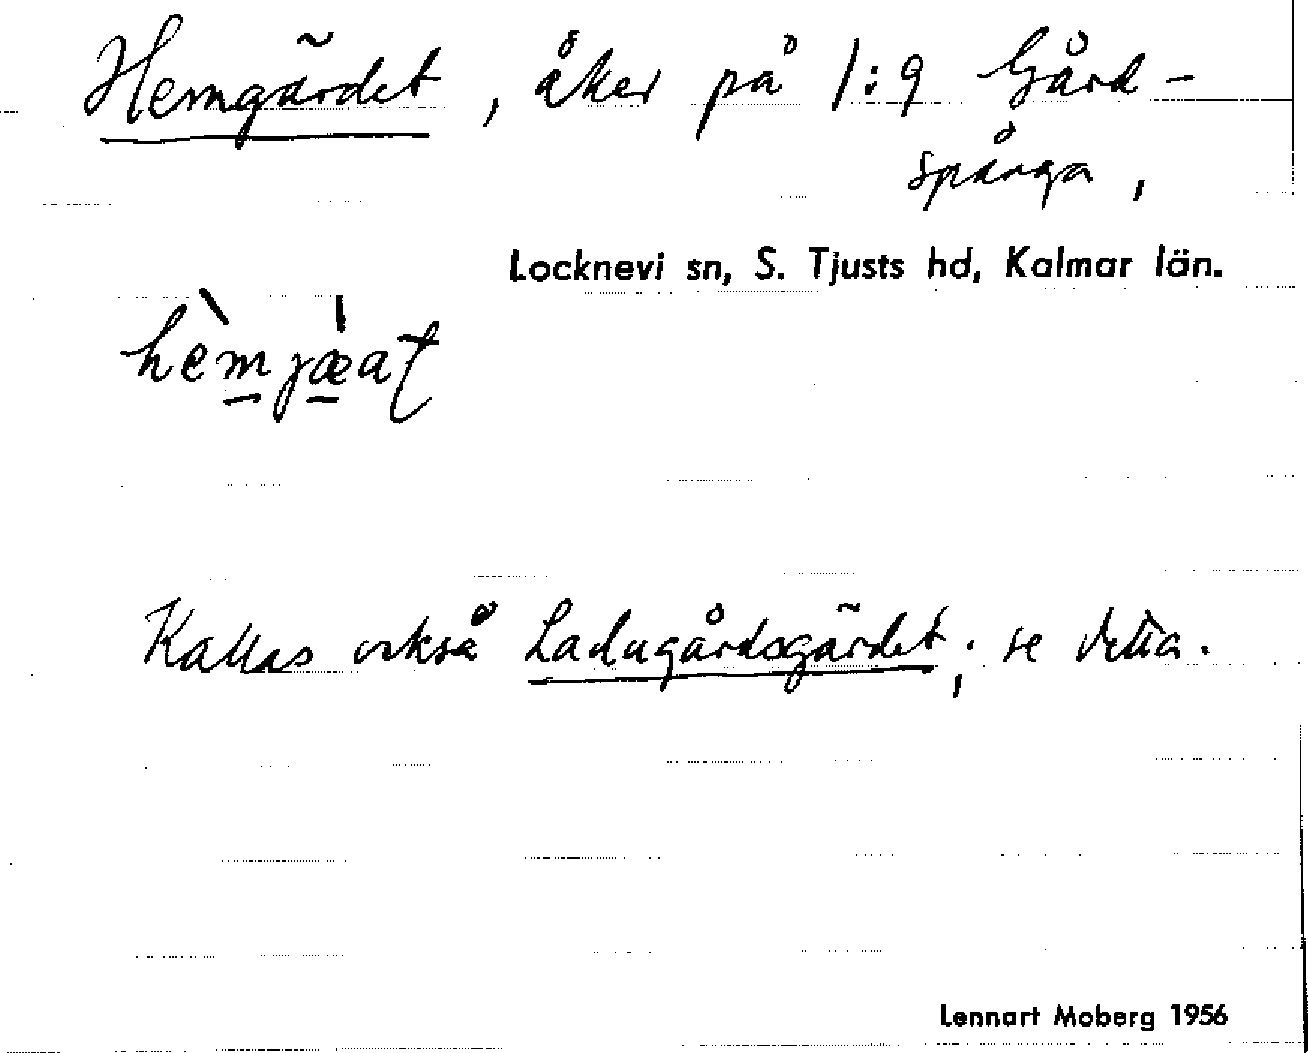 Hemgärdet, åker på 1:9 Gård-
spånga,
Locknevi sn, S. Tjusts hd, Kalmar län.
hèmjæat
Kallas också Ladugårdsgärdet; se detta.
Lennart Moberg 1956